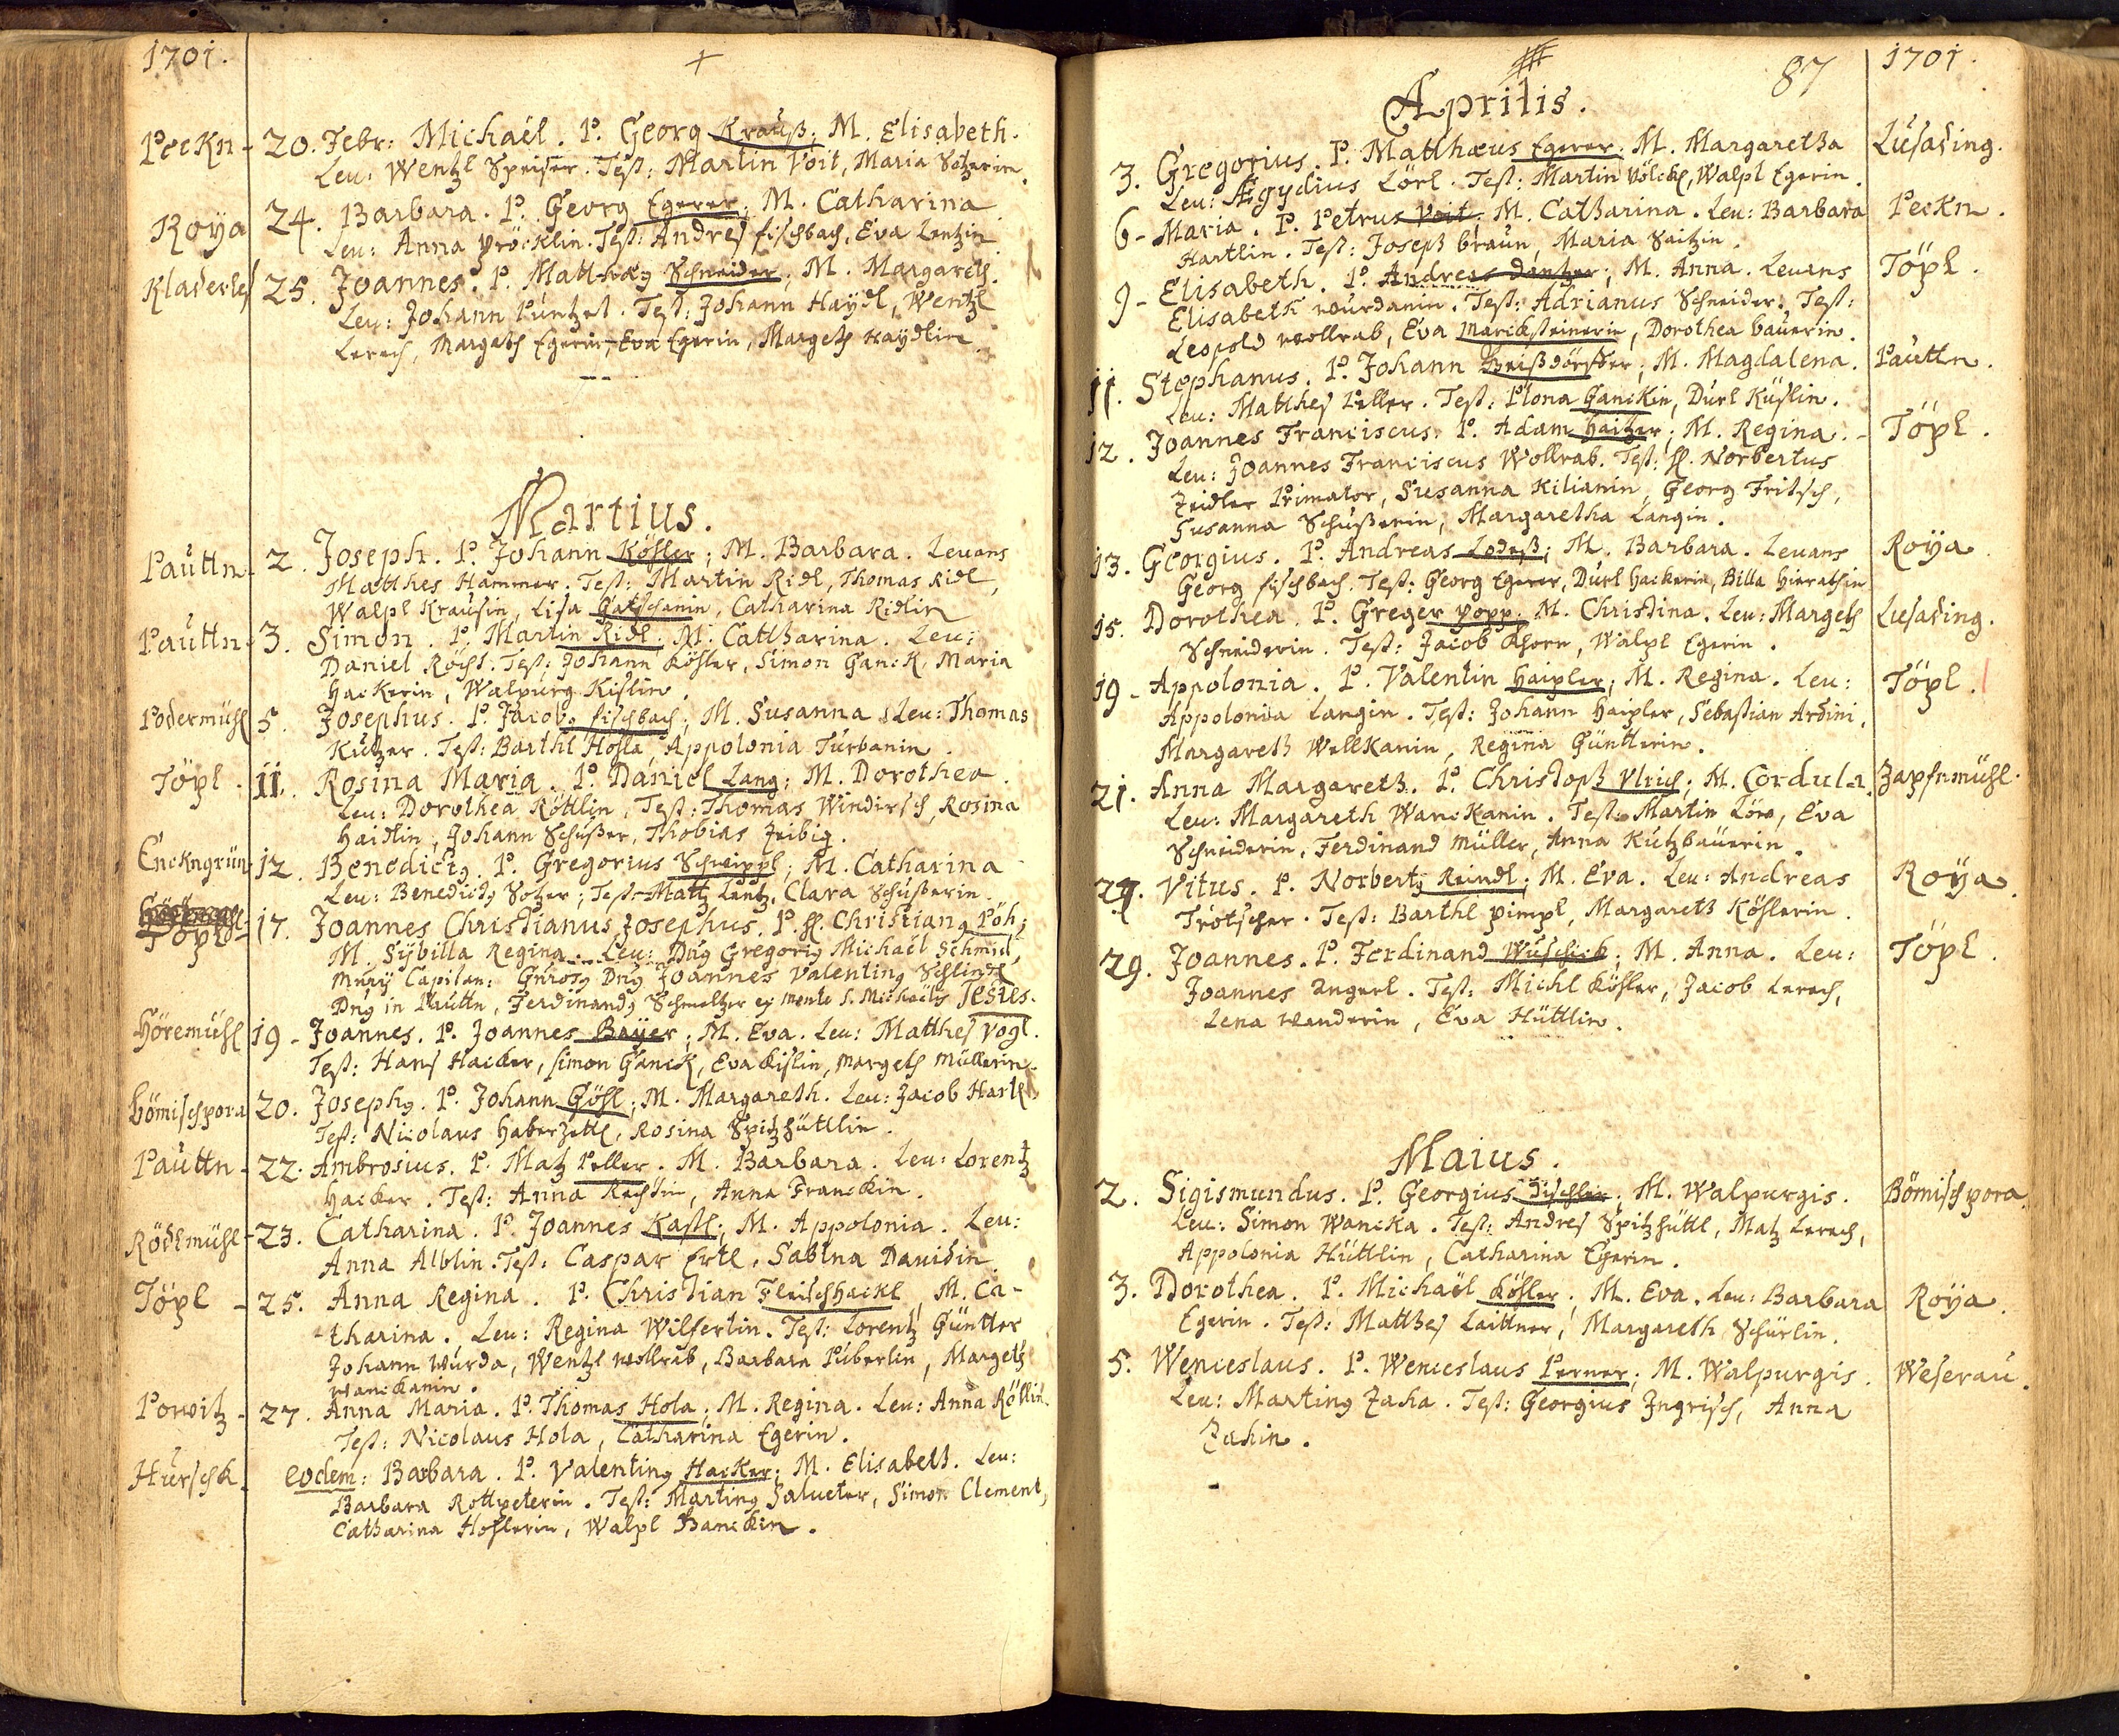 1701.
Peckn - 20. Febr: Michaël. P. Georg Krauß; M. Elisabeth.
Leu: Wentzl Speiser. Test: Martin Voit, Maria Sotzerin.
Roÿa 24. Barbara. P. Georg Egerer; M. Catharina
Leu: Anna Pröcklin. Test: Andres fischbach, Eva Lentzin
Kladerles 25. Joannes. P. Matthæg Schneider; M. Margareth.
Leu: Johann Puntzel. Test: Johann Haÿdl, Wentzl
Lerach, Margeth Egerin, Eva Egerin, Margeth Haÿdlin
Martius.
Pauttn - 2. Joseph. P. Johann Köhler; M. Barbara. Leuans
Matthes Hammer. Test: Martin Ridl, Thomas Ridl,
Walpl Krausin, Lisa Gatschanin, Catharina Ridlin
Pauttn - 3. Simon. P. Martin Ridl. M. Cattharina. Leu:
Daniel Röchl. Test: Johann Köhler, Simon Ganck, Maria
Hackerin, Walpurg Kislin.
Podermühl 5. Josephus. P. Jacobg fischbach; M. Susanna. Leu: Thomas
Kutzer. Test: Barthl Hosla, Appolonia Turbanin.
Töpl. 11. Rosina Maria. P. Daniel Lang; M. Dorothea.
Leu: Dorothea Röttlin, Test: Thomas Windirsch, Rosina
Haidlin, Johann Schußer, Thobias Zeibig.
Enckngrün 12. Benedictg. P. Gregorius Schneippl; M. Catharina
Leu: Benedictg Sotzer; Test: Matz Lentz, Clara Schußerin.
Töpl - 17. Joannes Christianus Josephus. P. H. Christiang Pöh;
M. Sÿbilla Regina. Leu: Dng Gregorig Michaël Schmid,
Joannes Valenting Schlindl
Dng in Pauttn, Ferdinandg Schmeltzer ex monte S. Michaëlis Testes.
Höremühl 19 - Joannes. P. Joannes Baÿer; M. Eva. Leu: Matthes Vogl.
Test: Hans Hacker, Simon Ganck, Eva Kislin, Margeth Müllerin.
Bömischpora 20. Josephg. P. Johann Göhl; M. Margareth. Leu: Jacob Hartl
Test: Nicolaus Haberzettl, Rosina Spitzhüttlin.
Pauttn - 22. Ambrosius. P. Matz Peller. M. Barbara. Leu: Lorentz
Hacker. Test: Anna Rechtin, Anna Franckin.
Rödlmühl - 23. Catharina. P. Joannes Kastl; M. Appolonia. Leu:
Anna Alblin. Test: Caspar Ertl, Sabina Dauidin.
Töpl - 25. Anna Regina. P. Christian Fleischhackl M. Ca-
-tharina. Leu: Regina Wilfertin. Test: Lorentz Güntter
Johann Wurda, Wentzl Wollrab, Barbara Püberlin, Margeth
Wanckanin.
Powitz - 27. Anna Maria. P. Thomas Hola; M. Regina. Leu: Anna Röllin.
Test: Nicolaus Hola, Catharina Egerin.
Hurschk. eodem: Barbara. P. Valenting Hacker; M. Elisabeth. Leu:
Barbara Rottpeterin. Test: Marting Salueter, Simon Clement,
Catharina Hoflerin, Walpl Banckin.
87 1701.
Aprilis.
3. Gregorius. P. Matthæus Egerer. M. Margaretha Lusading.
Leu: Ægydius Lörl. Test: Martin Völckl, Walpl Egerin.
6 - Maria. P. Petrus Voit. M. Catharina. Leu: Barbara Peckn.
Hartlin. Test: Joseph braun, Maria Saitzin.
9 - Elisabeth. P. Andreas Dantzer; M. Anna. Leuans Töpl.
Elisabeth Wurdanin. Test: Adrianus Schneider. Test:
Leopold Wollrab, Eva Marcksteinerin, Dorothea bauerin.
11. Stephanus. P. Johann; M. Magdalena. Pauttn.
Leu: Matthes Peller. Test: Plona Ganckin, Durl Kuslin.
12. Joannes Franciscus. P. Adam Haitzer; M. Regina. - Töpl.
Leu: Joannes Franciscus Wollrab. Test: H. Norbertus
Zeidler Primator, Susanna Kilianin, Georg Fritsch,
Susanna Schußerin, Margaretha Langin.
13. Georgius. P. Andreas Lodeß; M. Barbara. Leuans Roÿa
Georg fischbach. Test: Georg Egerer, Durl Hackerin, Billa Hierathin
15. Dorothea. P. Greger Popp. M. Christina. Leu: Margeth Lusading.
Schneiderin. Test: Jacob Ahorn, Walpl Egerin.
19 - Appolonia. P. Valentin Haipler; M. Regina. Leu: Töpl.
Appolonia Langin. Test: Johann Haipler, Sebastian Ardini,
Margareth Wellkanin, Regina Güntterin.
21. Anna Margareth. P. Christoph Vlrich; M. Cordula. Zapfnmühl.
Leu: Margareth Wanckanin. Test: Martin Löw, Eva
Schneiderin, Ferdinand Müller, Anna Kutzbauerin.
27. Vitus. P. Norbertg Reindl; M. Eva. Leu: Andreas Roÿa.
Trötscher. Test: Barthl Pimpl, Margareth Köhlerin.
29. Joannes. P. Ferdinand Wuschek; M. Anna. Leu: Töpl.
Joannes Angerl. Test: Michl Köhler, Jacob Lerach,
Lena Wanderin, Eva Hüttlin.
Maius.
2. Sigismundus. P. Georgius Tischler; M. Walpurgis. Bömischpora
Leu: Simon Wancka. Test: Andres Spitzhüttl, Matz Lerach,
Appolonia Hüttlin, Catharina Egerin.
3. Dorothea. P. Michaël Köhler; M. Eva. Leu: Barbara Roÿa.
Egerin. Test: Matthes Laittner, Margareth Schürlin.
5. Wenceslaus. P. Wenceslaus Perner; M. Walpurgis. Weserau.
Leu: Marting Zaha. Test: Georgius Ingrisch, Anna
Zahin.